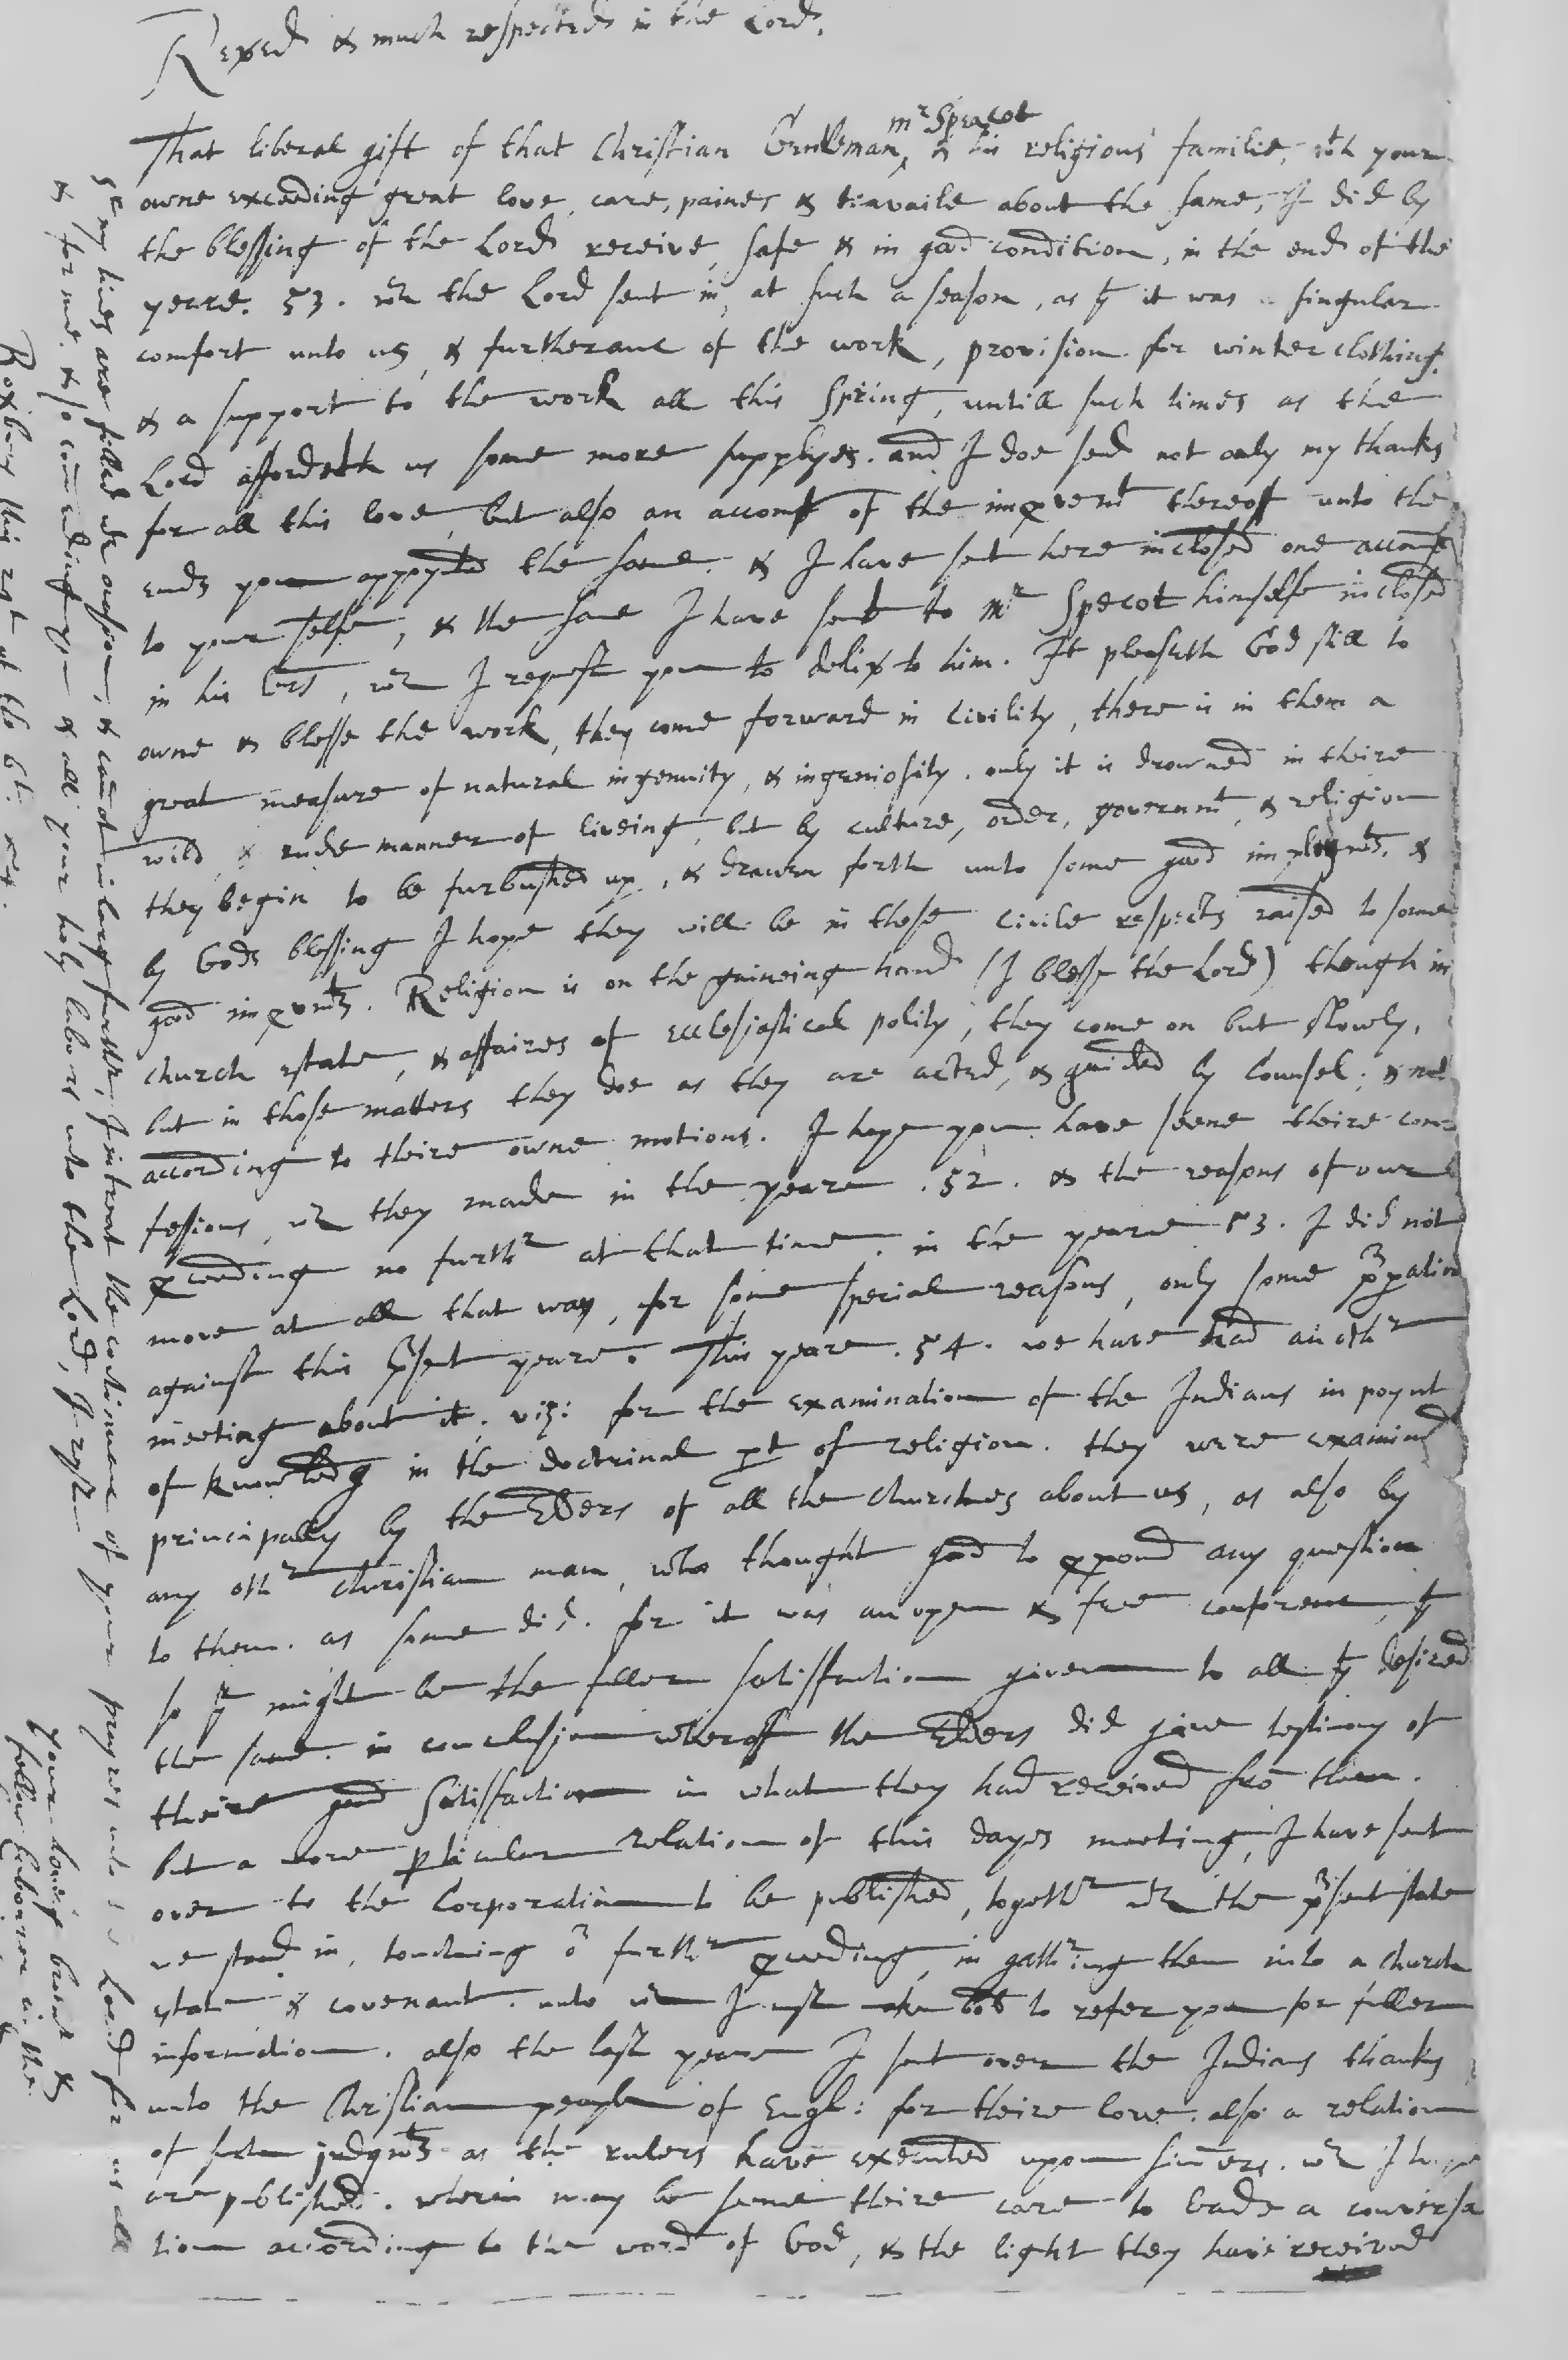 Rev\u1d49ed & much respected in the Lord.
mʳ Specot
That liberal gift of that Christian Gentleman, & his religious familie, wth your
owne exceeding great love, care, paines & travaile about the same, I did by
the blessing of the Lord receive, safe & in good condition, in the end of the
yeare. 53. wch the Lord sent in, at such a season, as yt it was a singular
comfort unto us, & furtheranc of the work, provision for winter clothing,
& a support to the work all this Spring, untill such times as the
Lord affordeth us some more supplyes. and I doe send not only my thanks
for all this love, but also an accompt of the impvemt thereof unto the
ends you appoynted the same. & I have sent here inclosed one accompt
to your selfe, & the same I have sent to mr Specot himselfe inclosed
in his lers, wch I request you to delivr to him. It pleaseth God still to
owne & blesse the work, they come forward in civility, there is in them a
great measure of natural ingenuity, & ingeniosity. only it is drowned in theire
wild, & rude manner of liveing, but by culture, order, governmt, & religion
they begin to be furbushed up, & drawn forth unto some good imploymts. &
by Gods blessing I hope they will be in these civile respects raised to some
good impvmts. Religion is on the gaineing hand (I blesse the Lord) though in
church estate, & affaires of ecclesiastical polity, they come on but slowly,
but in those matters they doe as they are acted, & guided by Counsel, & not
according to theire owne motions. I hope you have seene theire con
fesions, wch they made in the yeare .52. & the reasons of our
pceeding no furthr at that time. in the yeare 53. I did not
move at all that way, for some special reasons, only some prparation
against this prsent yeare. This yeare .54. we have had anothr
meeting about it, viz: for the examination of the Indians in poynt
of knowledg in the doctrinal pt of religion. they were examined
principally by the Elders of all the Churches about us, as also by
any othr christian man, who thought good to ppound any question
to them. as some did. for it was an open & free conferenc, yt
so yr might be the fuller satisfaction given to all yt desired
the same. in conclusion whereof the Elders did give testimony of
theire good satisfaction in what they had received fro them.
but a more pticular relation of this dayes meeting, I have sent
over to the Corporation to be published, togethr wth the prsent state
we stand in, touching or furthr pceeding, in gathring them into a church
estate & covenant. unto wch I must to refer you for fuller
information. also the last yeare I sent over the Indians thanks
unto the Christian people of Engl: for theire love. also a relation
of such judgmts as the rulers have executed upon sinners. wch I hope
are published. wherein may be seene theire care to leade a conversa
tion according to the word of God, & the light they have received
Sr my lines are filled wth occasions, & canot inlarg further, I intreat the continuanc of your prayers unto the Lord for us all
& for me. & so comending you & all your holy labors unto the Lord, I rest
your loveing brothr &
fellow labourer in the
Roxbury this 29t of the 6t: 54.